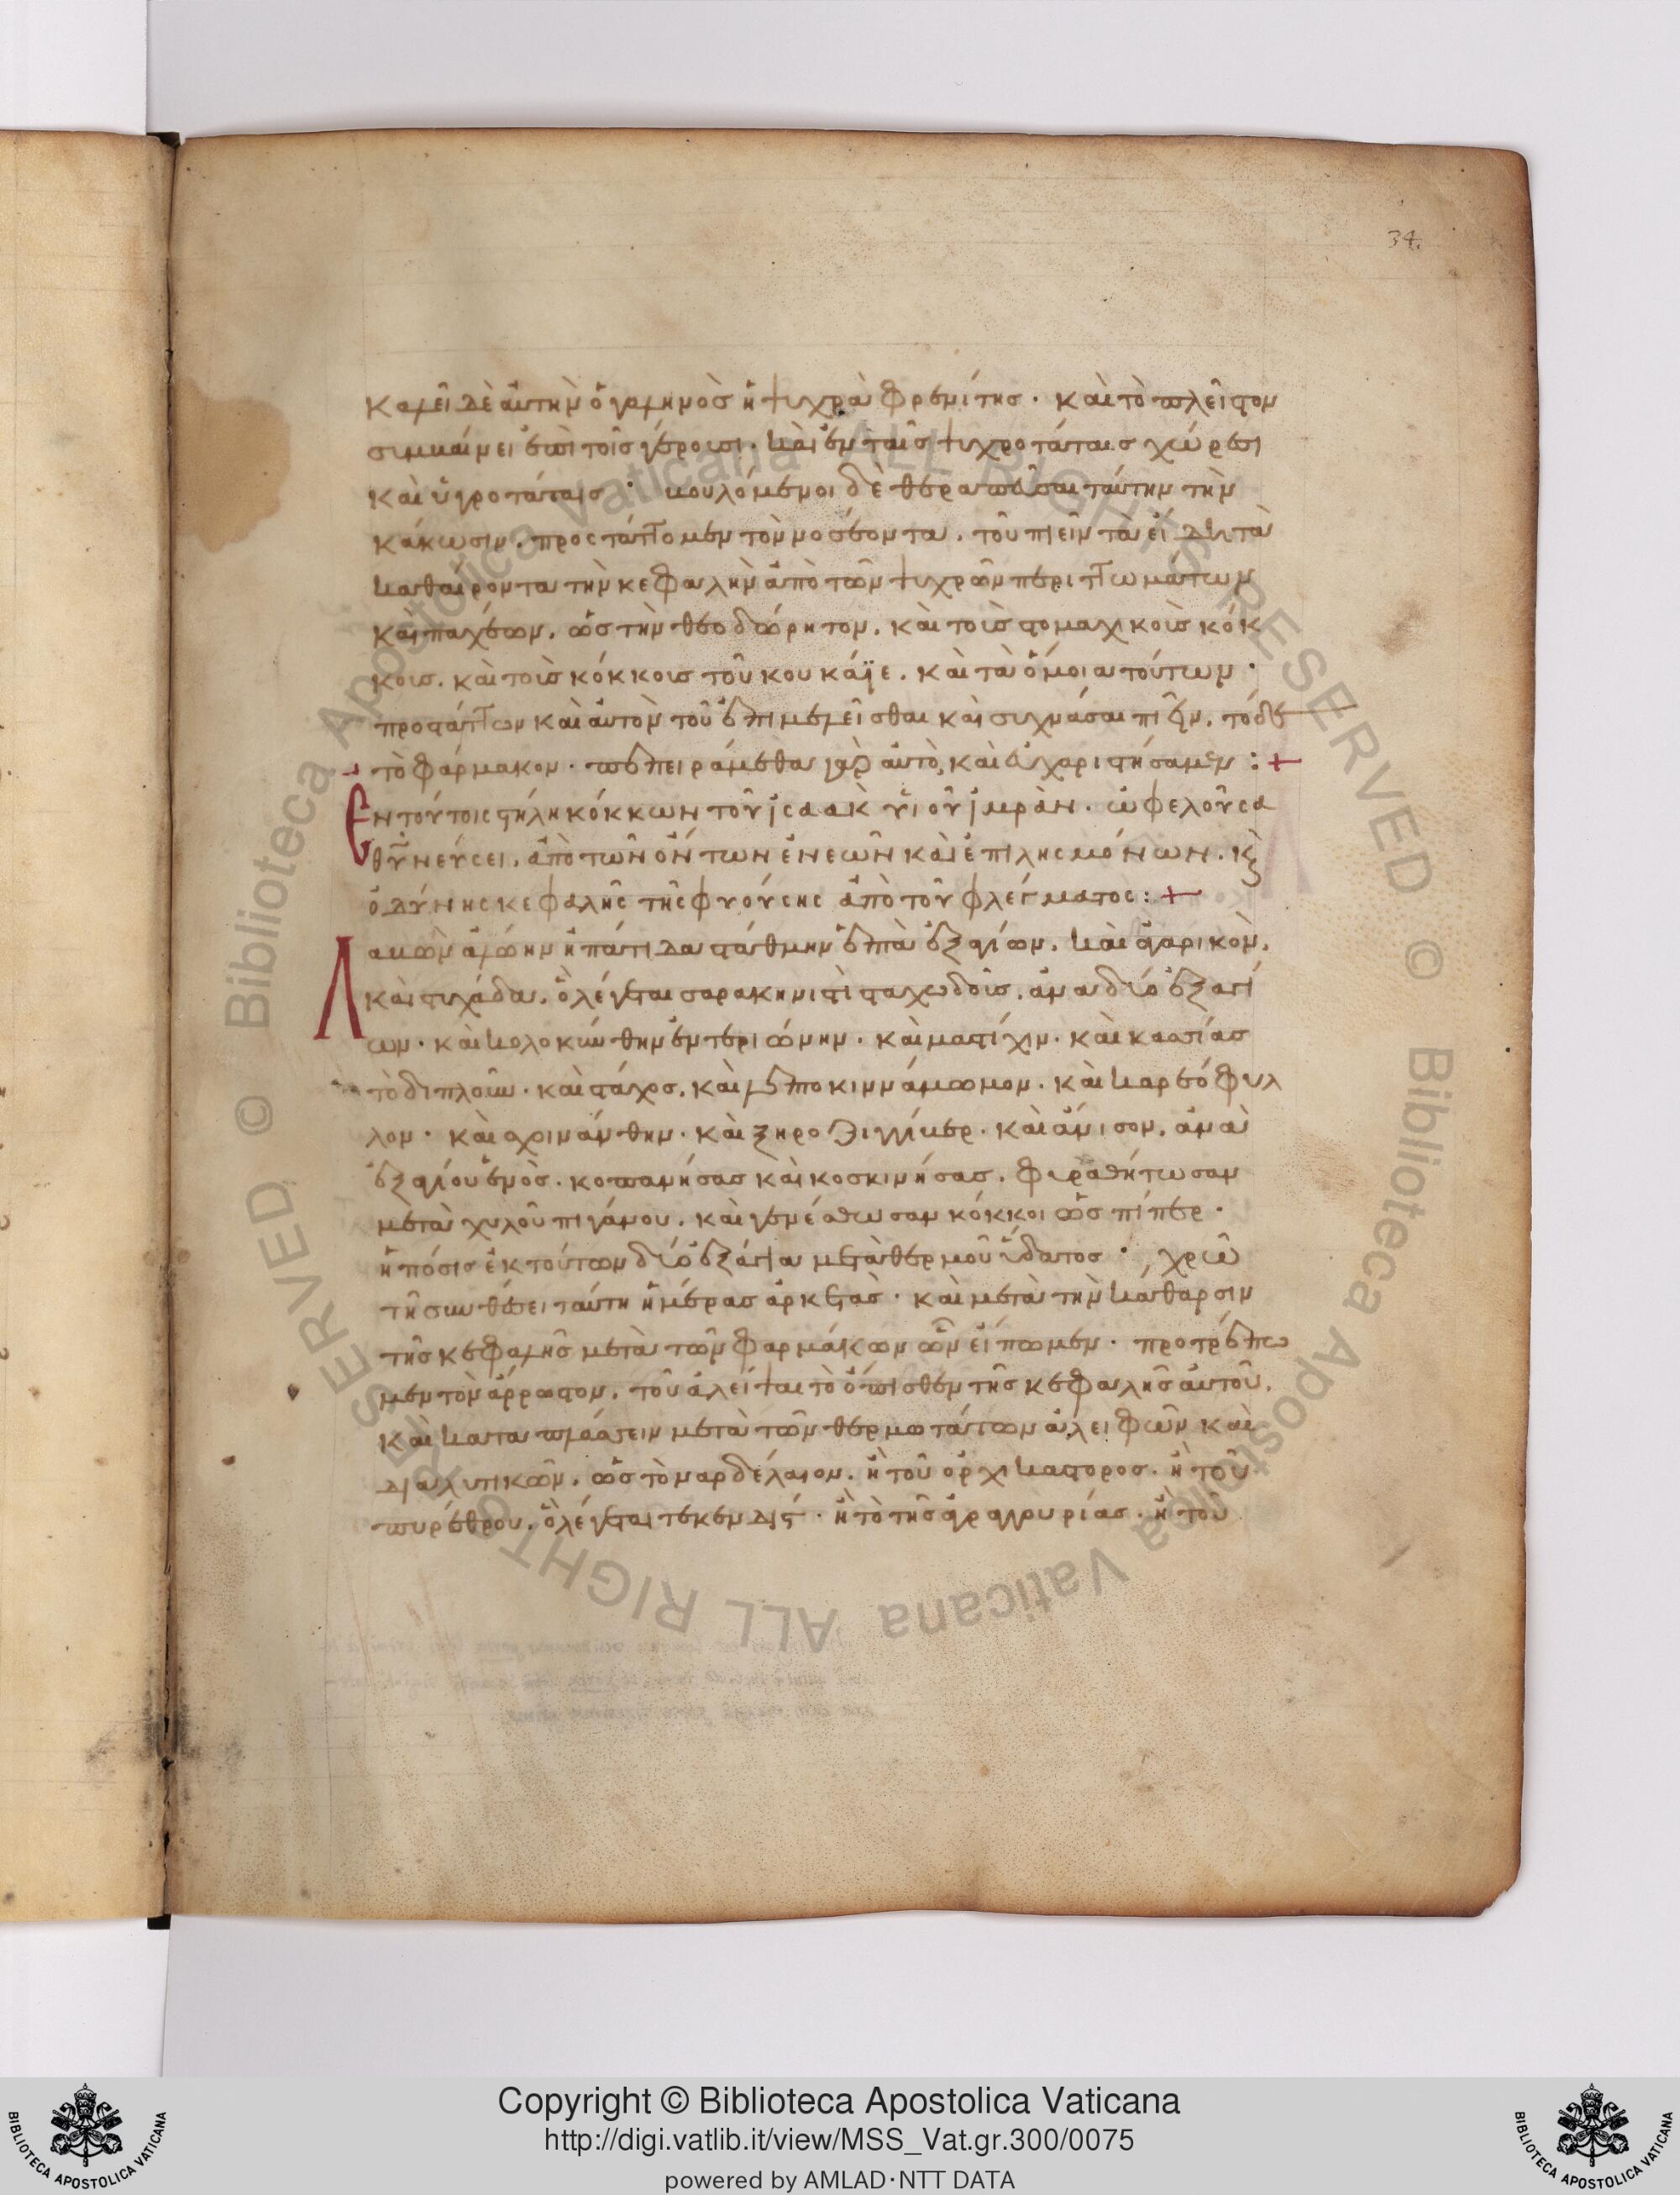 34.
καλεῖ δὲ αὐτὴν ὁ γαληνὸς ἡ ψυχρὰ φρενίτης · καὶ τὸ πλεῖστον
συμβαίνει ἐπὶ τοῖς γέρουσι · καὶ ἐν ταῖς ψυχροτάταις χώρεσι
καὶ ὑγροτάταις · βουλόμενοι δὲ θεραπεῦσαι ταύτην τὴν
κάκωσιν · προστάττομεν τὸν νοσέοντα · τοῦ πιεῖν τὰ εἴδη τὰ
καθαίροντα τὴν κεφαλὴν ἀπὸ τῶν ψυχρῶν περιττωμάτων
καὶ παχέων · ὡς τὴν θεοδώρητον · καὶ τοῖς στομαχικοῖς κόκ
κοις · καὶ τοῖς κόκκοις τοῦ κουκάϊε · καὶ τὰ ὅμοια τούτων ·
προστάττων καὶ αὐτὸν τοῦ ἐπιμελεῖσθαι καὶ συχνάσαι πιεῖν · τόδε
τὸ φάρμακον · πεπειράμεθα γὰρ αὐτὸ, καὶ εὐχαριστήσαμεν : +
Ἐν τούτοις στήλη κόκκων τοῦ ἰσαὰκ υἱοῦ ἰμρὰν · ὠφελοῦσα
θῦνεύσει · ἀπὸ τῶν ὄντων ἐνεῶν καὶ ἐπιλησμόνων · κὶ
ὀδύνης κεφαλῆς τῆς φυούσης ἀπὸ τοῦ φλέγματος : +
Λαβὼν ἀλώην ἡπάτιδα στάθμην ἑπτὰ ἐξαγίων · καὶ ἀγαρικὸν ·
καὶ στιχάδα · ὃ λέγεται σαρακηνιστὶ σταχωδοῖς · ἀνὰ δύο ἐξαγί
ων · καὶ κολοκύνθην ἐντεριώνην · καὶ μαστίχιν · καὶ κασσίας
τὸ διπλοῦν · καὶ στάχος · καὶ λεπτοκιννάμωμον · καὶ καρεόφυλ
λον · καὶ σχινάνθην · καὶ ξηροζιγγίβερ · καὶ ἄνισον · ἀνὰ
ἐξαγίου ἑνὸς · κοπανήσας καὶ κοσκινήσας · φυραθήτωσαν
μετὰ χυλοῦ πιγάνου · καὶ γενέσθωσαν κόκκοι ὡς πίπερ ·
ἡ πόσις ἐκ τούτων δύο ἐξάγια μετὰ θερμοῦ ὕδατος · χρῶ
τῇ συνθέσει ταύτῃ ἡμέρας ἀρκετάς · καὶ μετὰ τὴν κάθαρσιν
τῆς κεφαλῆς μετὰ τῶν φαρμάκων ὧν εἴπωμεν · προτρέπω
μεν τὸν ἄρρωστον · τοῦ ἀλείψαι τὸ ὄπισθεν τῆς κεφαλῆς αὐτοῦ ·
καὶ καταπλάσσειν μετὰ τῶν θερμωτάτων ἀλειφῶν καὶ
διαλυτικῶν · ὡς τὸ ναρδέλαιον · ἢ τοῦ ὀρχικάστορος · ἢ τοῦ
πυρέθρου · ὃ λέγεται τεκενδίς · ἢ τὸ τῆς ἀραγουρίας · ἢ τοῦ
Copyright © Biblioteca Apostolica Vaticana
http://digi.vatlib.it/view/MSS_Vat.gr.300/0075
powered by AMLAD·NTT DATA
BIBLIOTECA APOSTOLICA VATICANA
BIBLIOTECA APOSTOLICA VATICANA
© Biblioteca Apostolica Vaticana ALL RIGHTS RESERVED
© Biblioteca Apostolica Vaticana ALL RIGHTS RESERVED